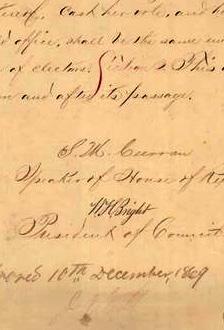 thereof, cast her vote, and h
d office, shall be the same un
n of electors. Section 2. This
ce on and after its passage.
S. M. Curran
Speaker of House of R
W H Bright
President of Council
10th December, 1869